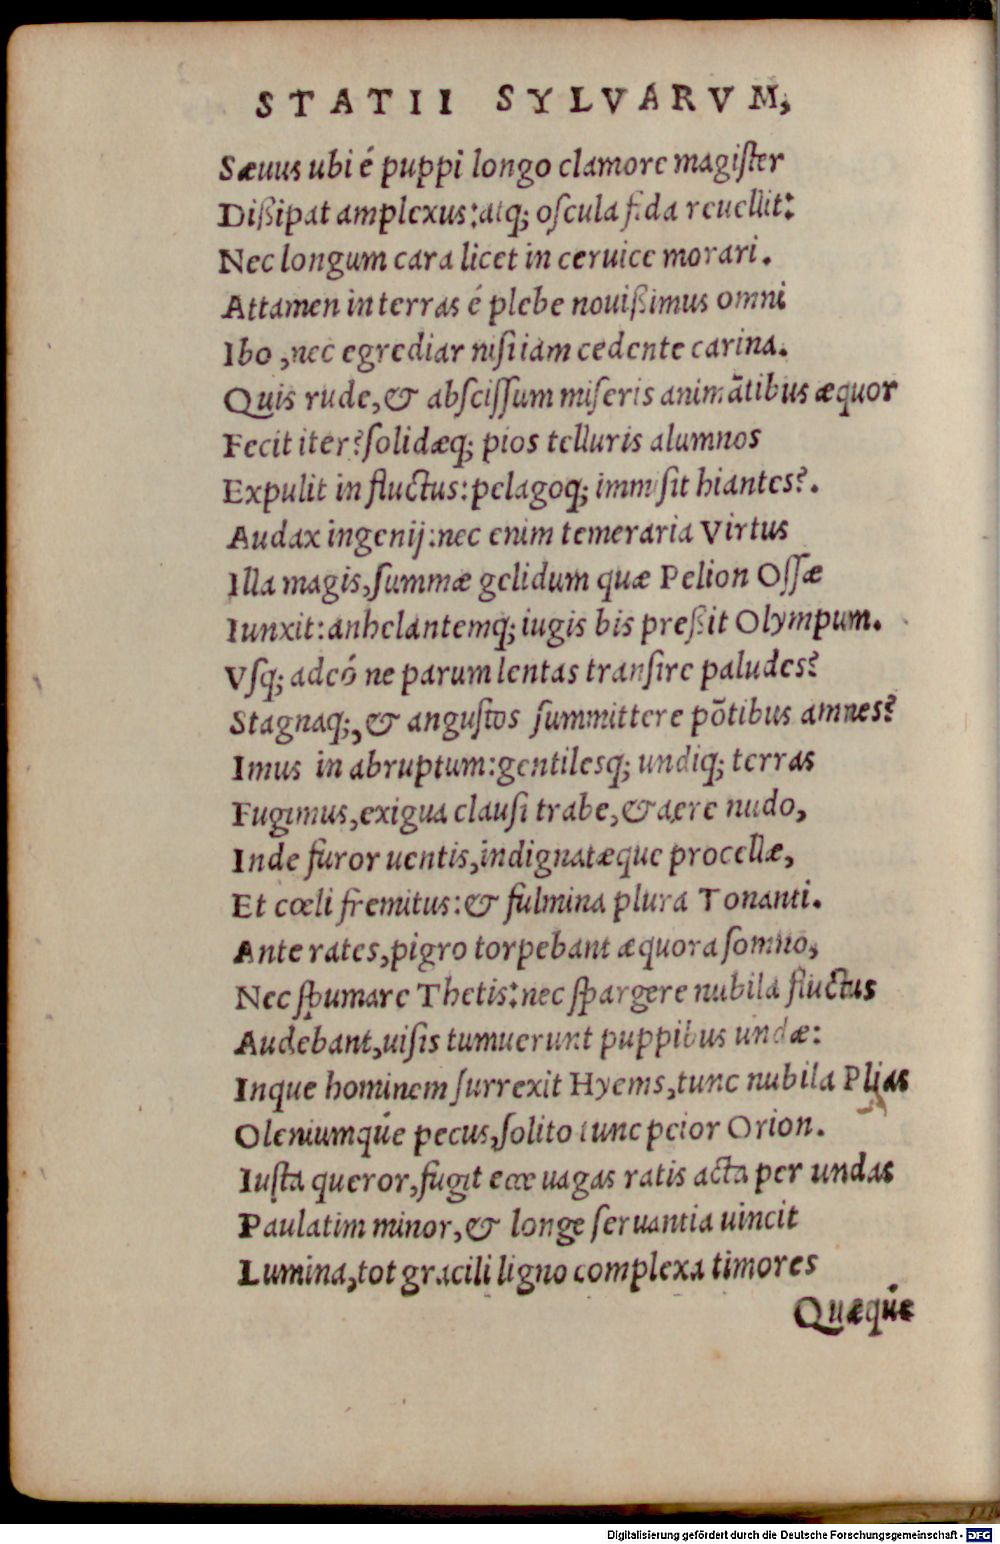 STATII SYLVARVM,
Sæuus ubi é puppi longo clamore magister
Dißipat amplexus:atq; oscula fida reuellit:
Nec longum cara licet in ceruice morari.
Attamen in terras é plebe nouißimus omni
Ibo ,nec egrediar nisi iam cedente carina.
Quis rude,& abscissum miseris animãtibus æquor
Fecit iter?solidæq; pios telluris alumnos
Expulit in fluctus:pelagoq; immisit hiantes?.
Audax ingenij:nec enim temeraria Virtus
Illa magis,summæ gelidum quæ Pelion Ossæ
Iunxit:anhelantemq; iugis bis preßit Olympum.
Vsq; adeó ne parum lentas transire paludes?
Stagnaq;,& angustos summittere põtibus amnes?
Imus in abruptum:gentilesq; undiq; terras
Fugimus,exigua clausi trabe,& aere nudo,
Inde furor uentis,indignatæque procellæ,
Et cœli fremitus:& fulmina plura Tonanti.
Ante rates,pigro torpebant æquora somno,
Nec spumare Thetis:nec spargere nubila fluctus
Audebant,uisis tumuerunt puppibus undæ:
Inque hominem surrexit Hyems,tunc nubila Plias
Oleniumq́ue pecus,solito tunc peior Orion.
Iusta queror,fugit ecce uagas ratis acta per undas
Paulatim minor,& longe seruantia uincit
Lumina,tot gracili ligno complexa timores
Quæq́ue
Digitalisierung gefördert durch die Deutsche Forschungsgemeinschaft - DFG